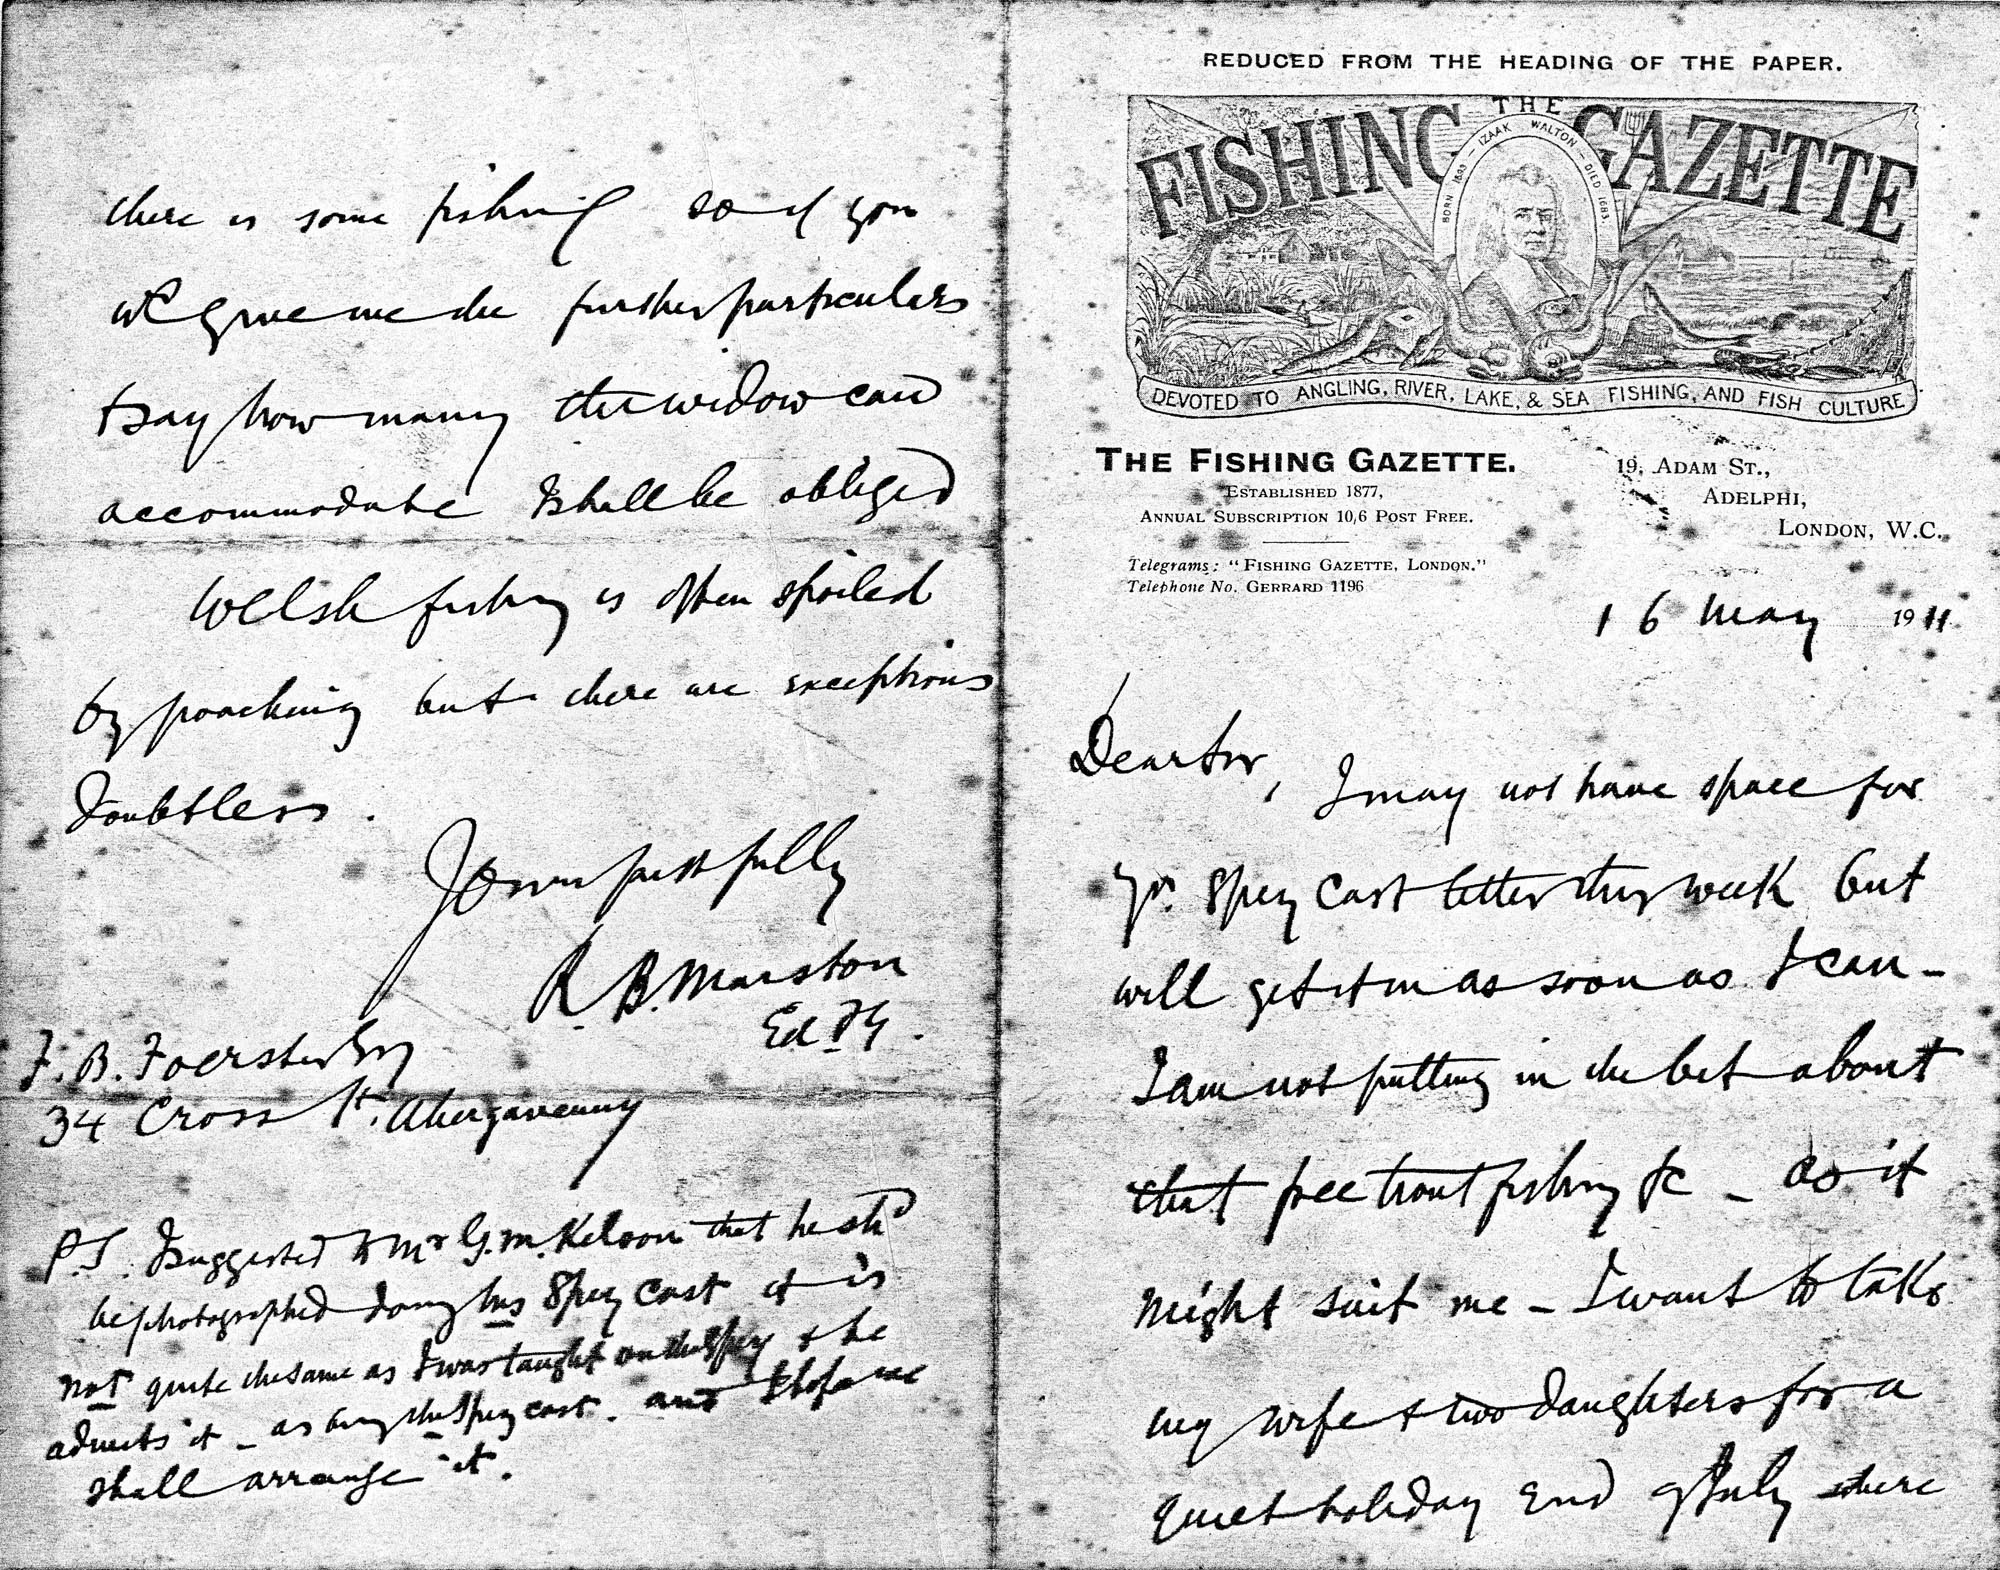 REDUCED FROM THE HEADING OF THE PAPER.
THE
FISHING GAZETTE
BORN 1593 – IZAAK WALTON – DIED 1683.
DEVOTED TO ANGLING, RIVER, LAKE, & SEA FISHING, AND FISH CULTURE
THE FISHING GAZETTE.
ESTABLISHED 1877,
ANNUAL SUBSCRIPTION 10/6 POST FREE.
Telegrams: "FISHING GAZETTE, LONDON."
Telephone No. GERRARD 1196
19, ADAM ST.,
ADELPHI,
LONDON, W.C.
16 May 1911
Dear Sir, I may not have space for
yr. Spey Cast letter this week but
will get it in as soon as I can –
I am not putting in the bit about
that free trout fishing &c – as it
might suit me – I want to take
my wife & two daughters for a
quiet holiday end of July where
there is some fishing so if you
wd give me the further particulars
& say how many the widow can
accommodate I shall be obliged
Welsh fishing is often spoiled
by poaching but there are exceptions
doubtless.
Yours faithfully
R. B. Marston
Ed F G.
F. B. Foerster Esq
34 Cross St. Abergavenny
P.S. I suggested to Mr G. M. Kelson that he shd
be photographed doing his Spey Cast it is
not quite the same as I was taught on the Spey & he
admits it – as being the Spey cast. and I hope we
shall arrange it.